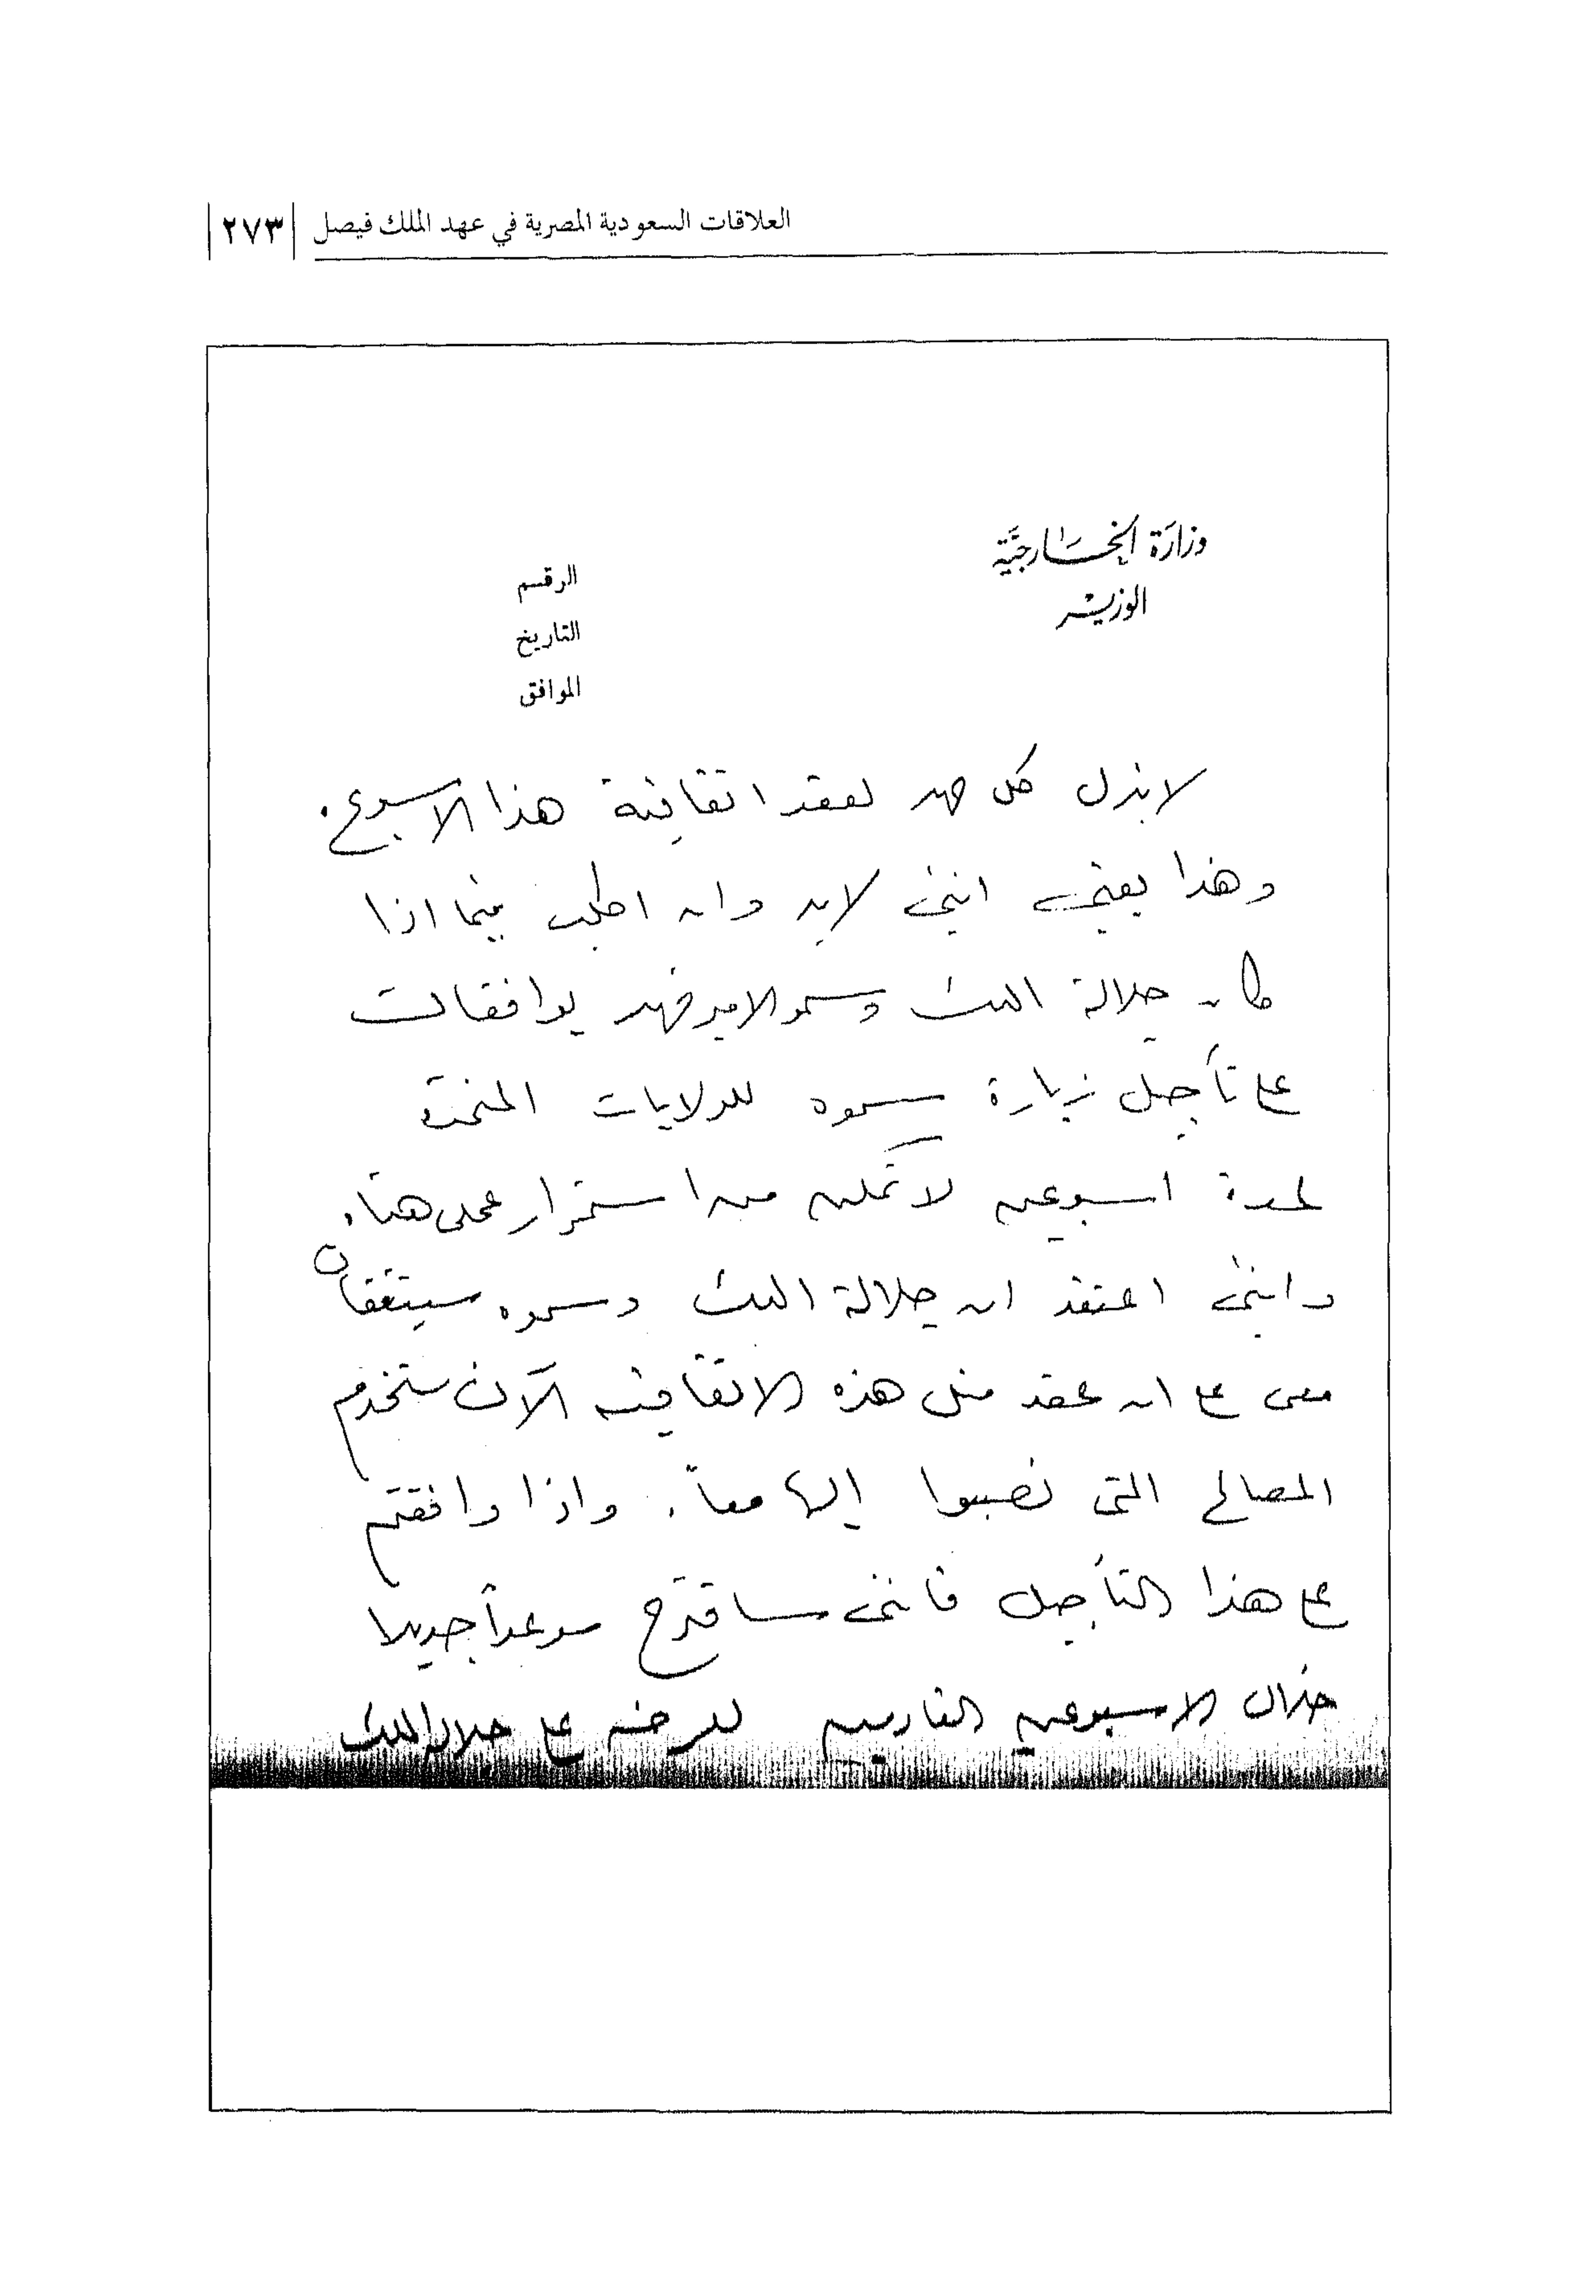 العلاقات السعودية المصرية في عهد الملك فيصل ٢٧٣
وزارة الخارجية
الوزير
الرقم
التاريخ
الموافق
لابذل كل جهد لعقد اتفاقية هذا الاسبوع.
وهذا يعني انني لابد وان اطلب فيما اذا
كان جلالة الملك وسمو الامير فهد يوافقان
على تأجيل زيارة سموه للولايات المتحدة
لمدة اسبوعين لاتمكن من استمرار عملي هنا.
وانني اعتقد ان جلالة الملك وسموه سيتفقان
معي على ان عقد مثل هذه الاتفاقية الآن ستخدم
المصالح التي نصبوا إليها معاً. واذا وافقتم
على هذا التأجيل فانني ساقترح موعداً جديدا
خلال الاسبوعين القادمين على جلالة الملك